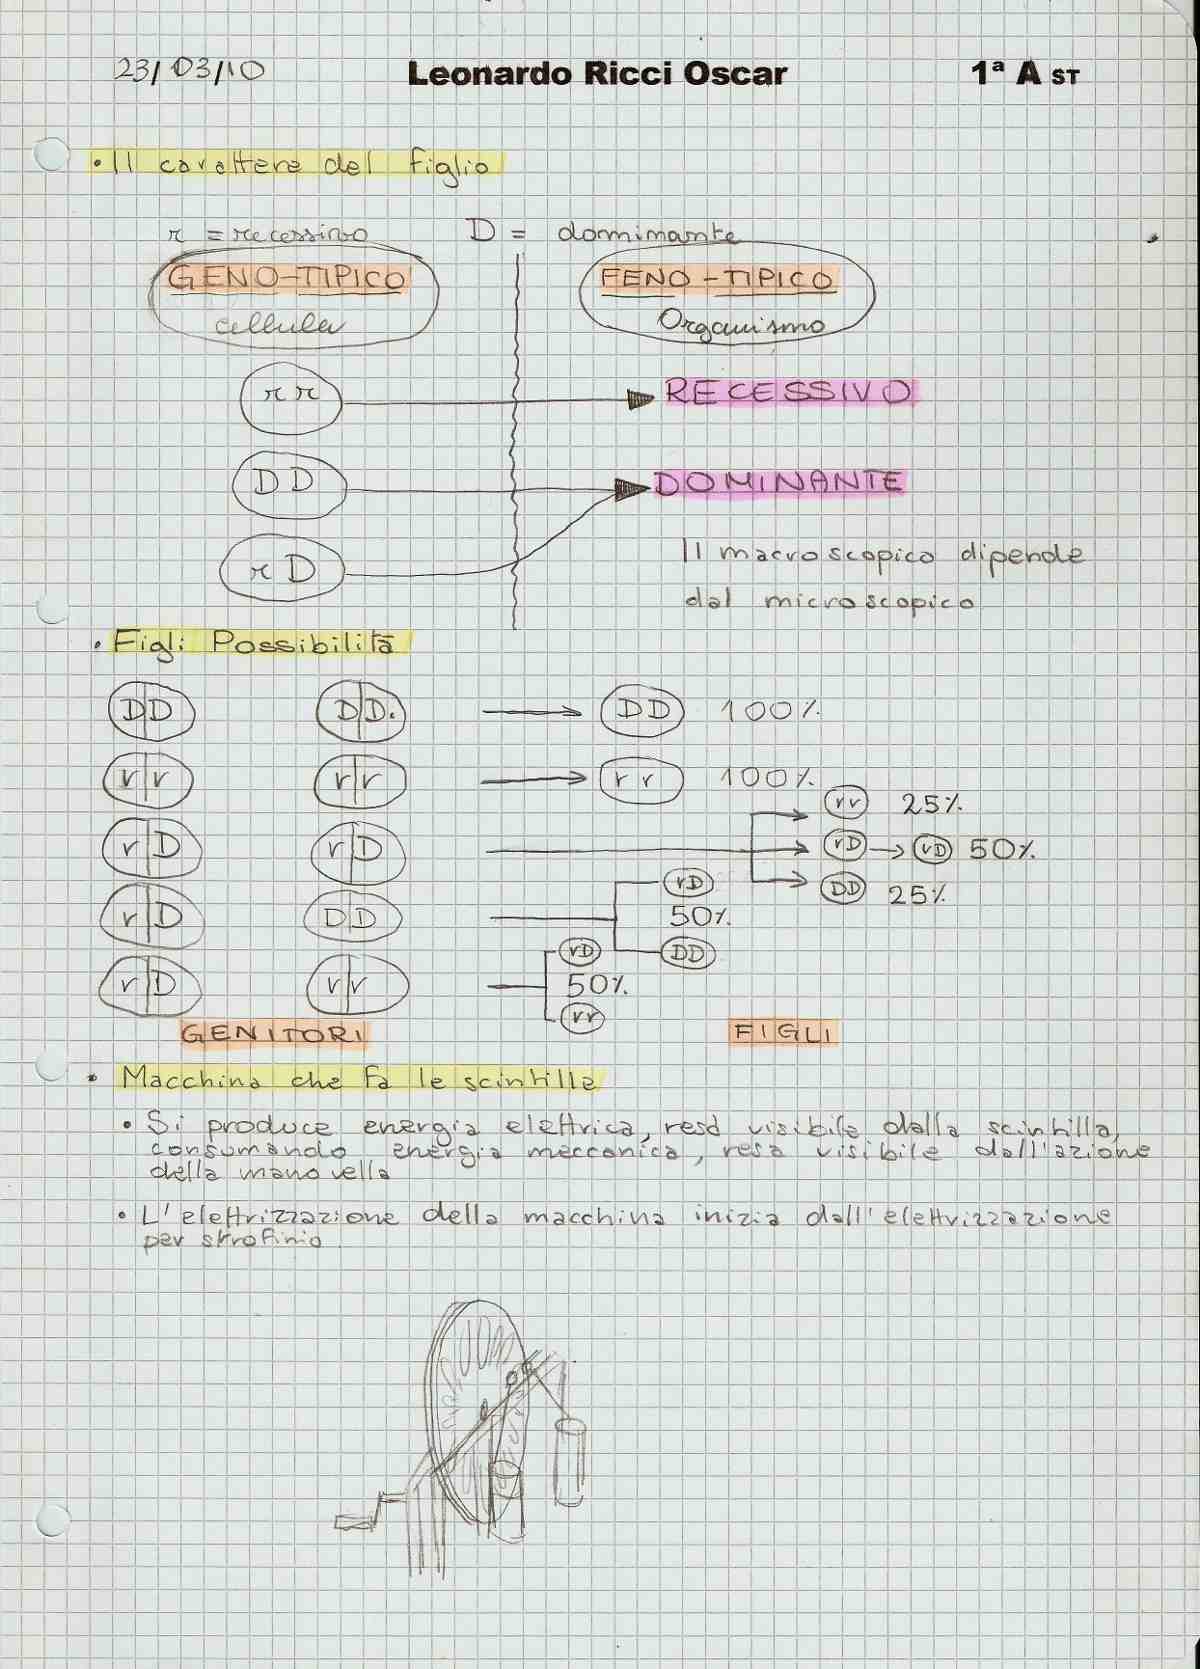 23/03/10 Leonardo Ricci Oscar 1ª A ST
• Il carattere del figlio
r = recessivo D = dominante
GENO-TIPICO FENO-TIPICO
cellula Organismo
r r RECESSIVO
D D DOMINANTE
r D
Il macroscopico dipende
dal microscopico
• Figli Possibilità
D D D D. D D 100%
r r r r r r 100%
r r 25%
r D r D r D r D 50%
D D 25%
r D D D r D
50%
D D
r D r r r D
50%
r r
GENITORI FIGLI
• Macchina che fa le scintille
• Si produce energia elettrica, resa visibile dalla scintilla,
consumando energia meccanica, resa visibile dall'azione
della manovella
• L'elettrizzazione della macchina inizia dall'elettrizzazione
per strofinio